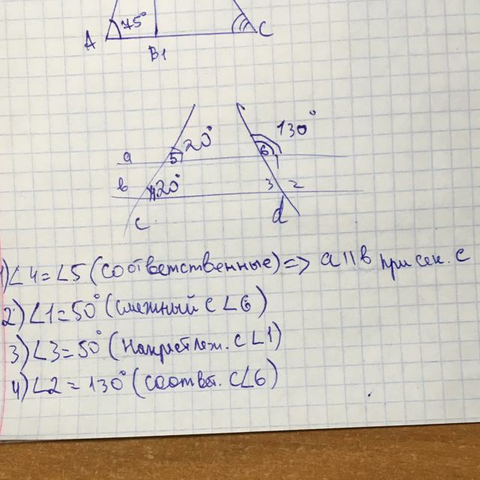 75°
A C
B1
20° 130°
a 5 6
1
b 4 20° 3 2
c d
1) ∠4=∠5 (соответственные) => a||b при сек. c
2) ∠1=50° (смежный с ∠6)
3) ∠3=50° (Накрест леж. с ∠1)
4) ∠2=130° (соотв. с ∠6)